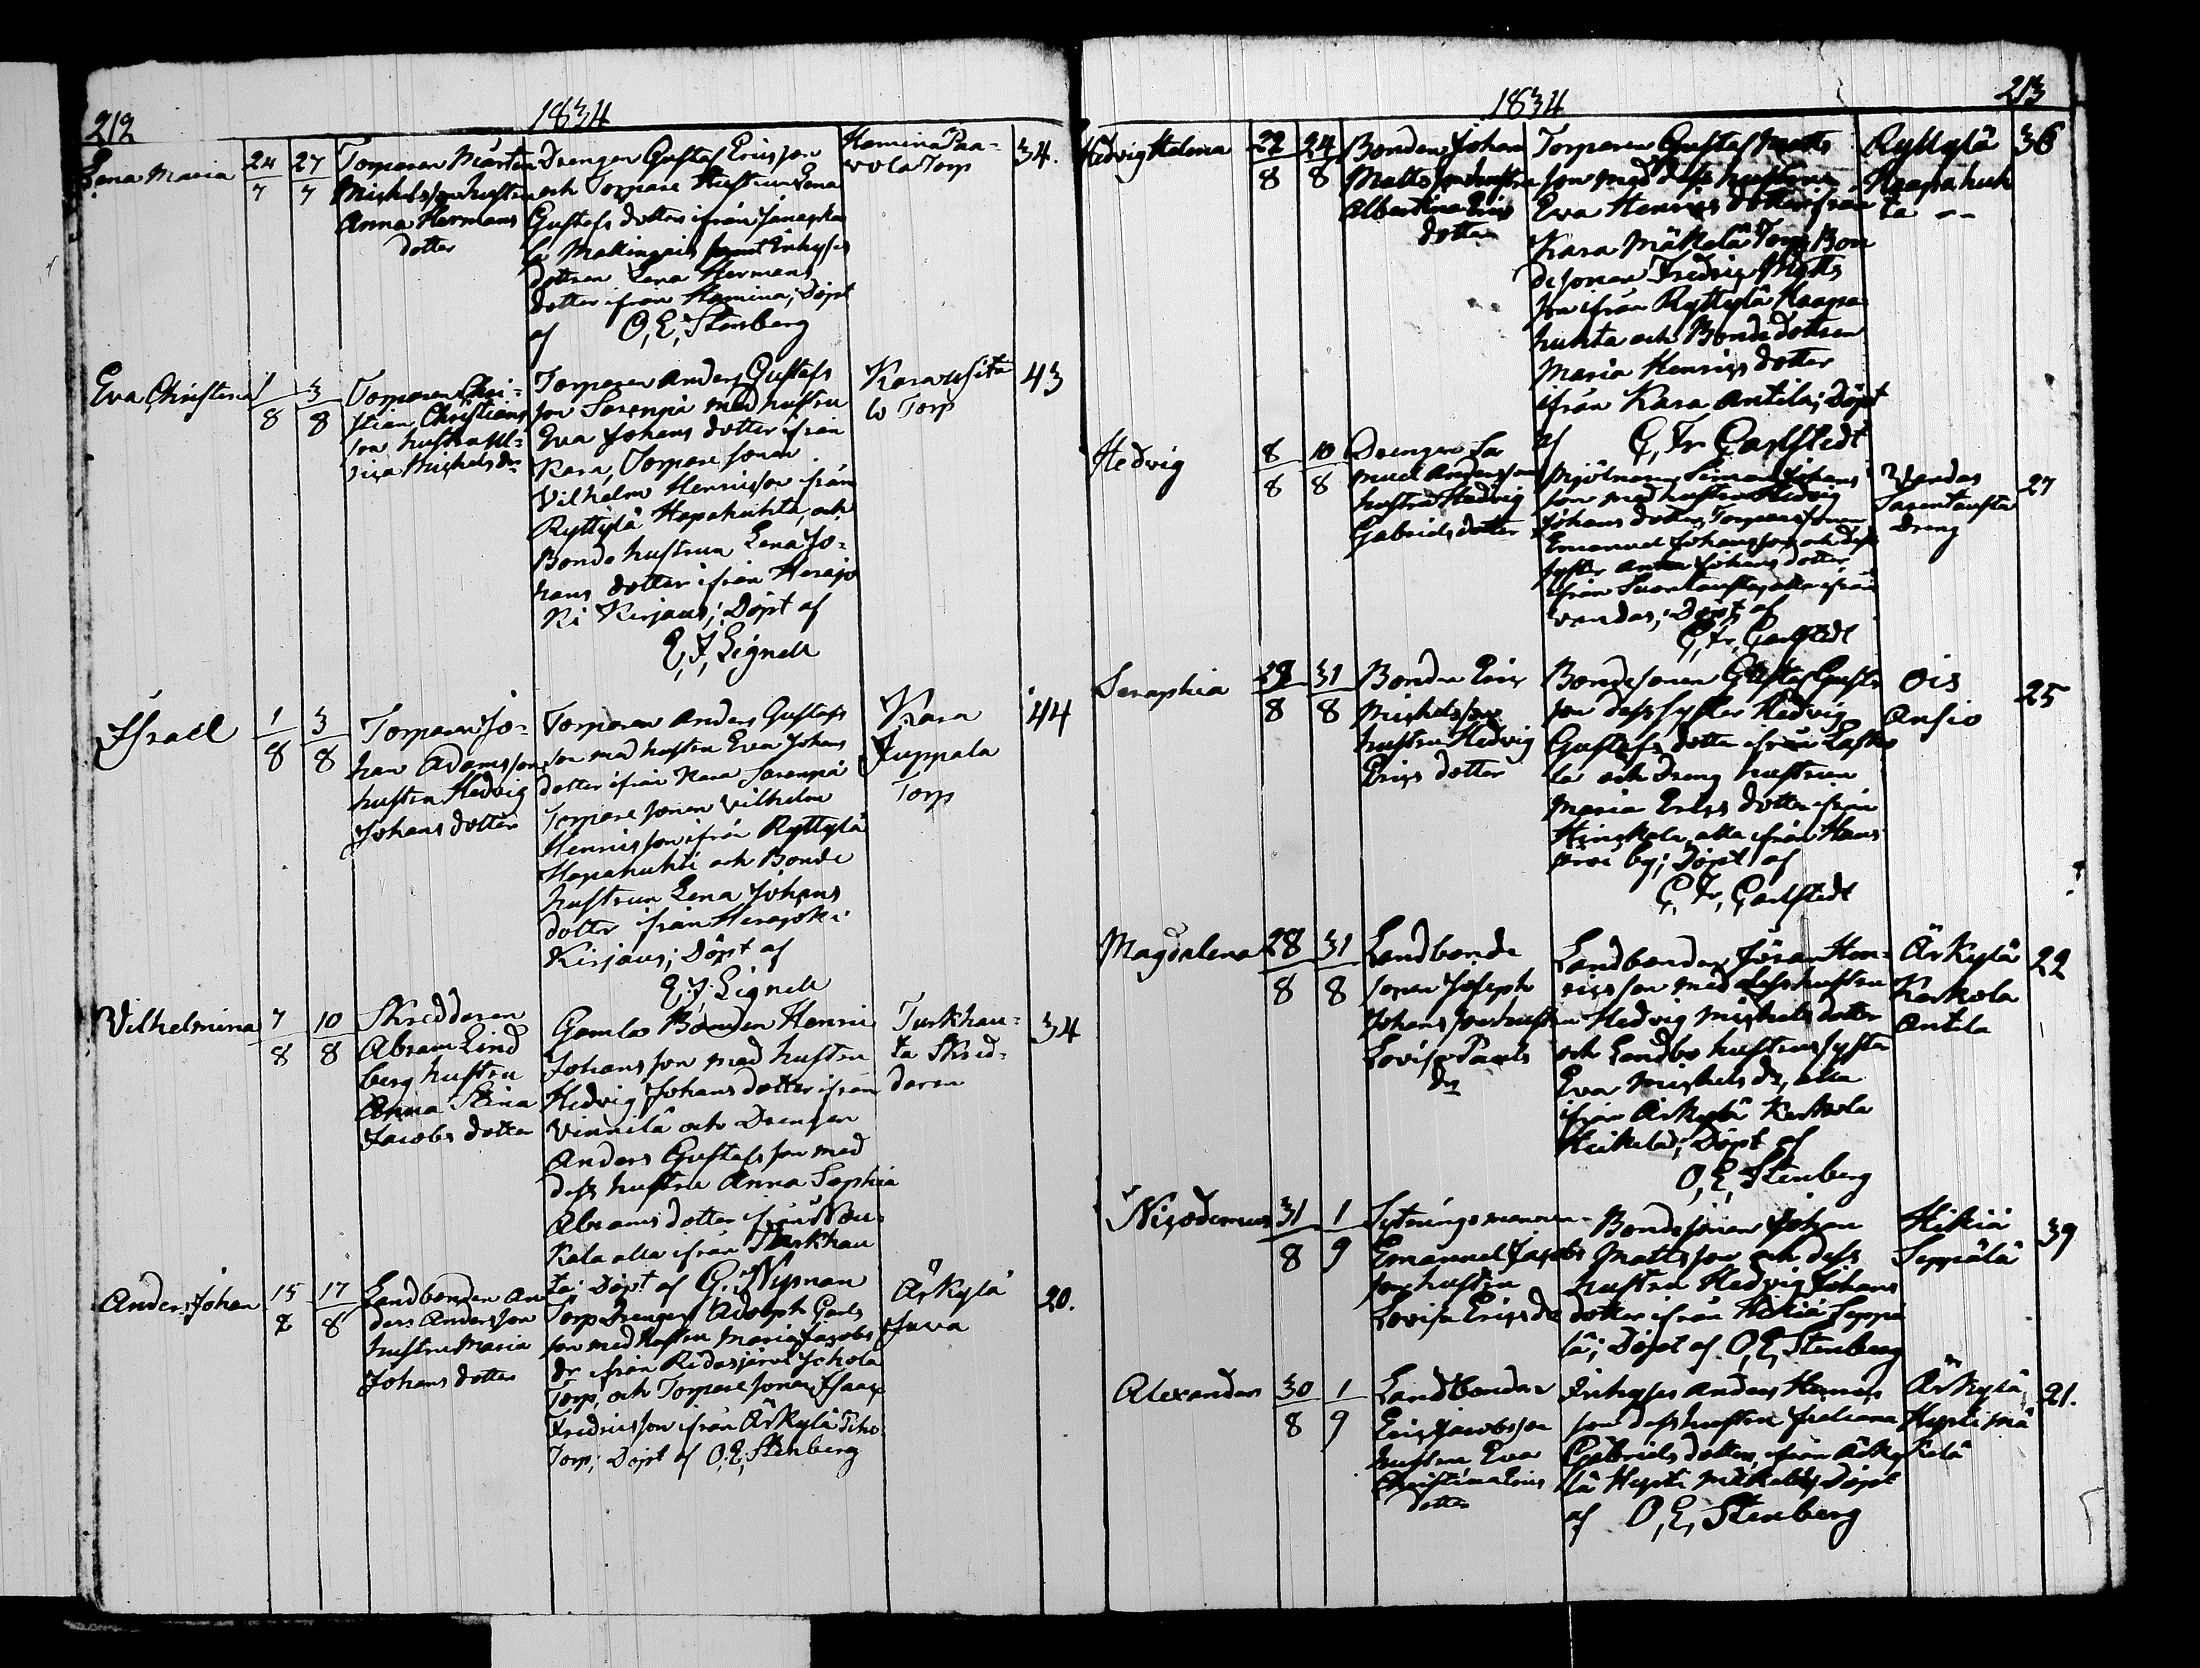 212
1834
Lena Maria
24/7
27/7
Torparen Mårten
Michelsson hustru
Anna Hermans
dotter
Drengen Gustaf Ericsson
och Torpare Hustrun Lena
Gustafs dotter ifrån Janakka
la Mallingais samt Inhyses
dottren Lena Hermans
dotter ifrån Hamina; Döpt
af O, E, Stenberg
Hamina Paa-
vola Torp
34.
Eva Christina
1/8
3/8
Torparen Chri-
stian Christians
son hustru Ul-
rica Michels dr
Torparen Anders Gustafs
son Sarenpä med hustru
Eva Johans dotter ifrån
Kara, Torpare sonen
Vilhelm Henricsson ifrån
Ryttylä Hapahuhta, och
Bonde hustrun Lena Jo-
hans dotter ifrån Herajo
ki Kirjaus; Döpt af
E, J, Lignell
Kara
Torp
43
Israel
1/8
3/8
Torparen Jo-
han Adamsson
hustru Hedvig
Johans dotter
Torparen Anders Gustafs
son med hustru Eva Johans
dotter ifrån Kara Sarenpä
Torpare sonen Vilhelm
Henricsson ifrån Ryttylä
Hapahuhti och Bonde
hustrun Lena Johans
dotter ifrån Herajoki
Kirjaus; Döpt af
E. J. Lignell
Kara
Juppala
Torp
44
Vilhelmina
7/8
10/8
Skreddaren
Abram Lind
berg hustru
Anna Stina
Jacobs dotter
Gamla Bonden Henric
Johansson med hustru
Hedvig Johans dotter ifrån
Vinnilä och Drengen
Anders Gustafsson med
dess hustru Anna Sophia
Abrams dotter ifrån Nau-
kala alla ifrån Turkhau
ta; Döpt af G. Nyman
Turkhau-
ta Skred-
daren
34
Anders Johan
15/8
17/8
Landbonden An
ders Andersson
hustru Maria
Johans dotter
Torp Drengen Adolph Carls
son med hustru Maria Jacobs
dr ifrån Ridasjärvi Johola
Torp, och Torpare sonen Isaac
Fredricsson ifrån Ärkylä Tiho
Torp; Döpt af O, E, Stenberg
Ärkylä
Juva
20.
1834
213
Hedvig Helena
22/8
24/8
Bonden Johan
Mattsson hustru
Albertina Erics
dotter
Torparen Gustaf Matts
son med dess hustru
Eva Henrics dotter ifrån
Kara Mäkelä Torp, Bon
desonen Fredric Matts
son ifrån Ryttylä Haapa
huhta och Bondedottren
Maria Henrics dotter
ifrån Kara Antila; Döpt
af C, Fr, Carlstedt
Ryttylä
Haapahuh
ta --
36
Hedvig
8/8
10/8
Drengen Sa
muel Andersson
hustru Hedvig
Gabriels dotter
Mjölnaren Simon Johans
son med hustru Hedvig
Johans dotter, Torparesonen
Emanuel Johansson och dess
syster Anna Johans dotter
ifrån alla ifrån
Vendas; Döpt af
C, Fr, Carlstedt
Vendas
Dreng
27
Seraphia
29/8
31/8
Bonden Eric
Michelsson
hustru Hedvig
Erics dotter
Bondesonen Gustaf Gustafs
son dess syster Hedvig
Gustafs dotter ifrån Lasko
la och Dreng hustrun
Maria Erics dotter ifrån
Hinskala, alla ifrån Haus
järvi by; Döpt af
C, Fr, Carlstedt
Ois
Ansio
25
Magdalena
28/8
31/8
Landbonde
sonen Joseph
Johansson hustru
Lovisa Pauls
dr
Landbonden Jöran Hen-
ricsson med dess hustru
Hedvig Michels dotter
och Landbo hustruns syster
Eva Michels dr, alla
ifrån Ärkylä Karkola
Heikelä; Döpt af
O, E, Stenberg
Ärkylä
Karkola
Antila
22
Nicodemus
31/8
1/9
Syteningsmannen
Emanuel Jacobs
son hustru
Lovisa Erics dr
Bondesonen Johan
Mattsson och dess
hustru Hedvig Johans
dotter ifrån Hikiä Seppä
lä; Döpt af O, E, Stenberg
Hikiä
Seppälä
39
Alexander
30/8
1/9
Landbonden
Eric Jacobsson
hustru Eva
Christina Erics
dotter
Inhyses Anders Henrics
son dess hustru Juliana
Gabriels dotter, ifrån Ärky
lä Hepti mäkelä; Döpt
af O, E, Stenberg
Ärkylä
Heptimä
kelä
21.